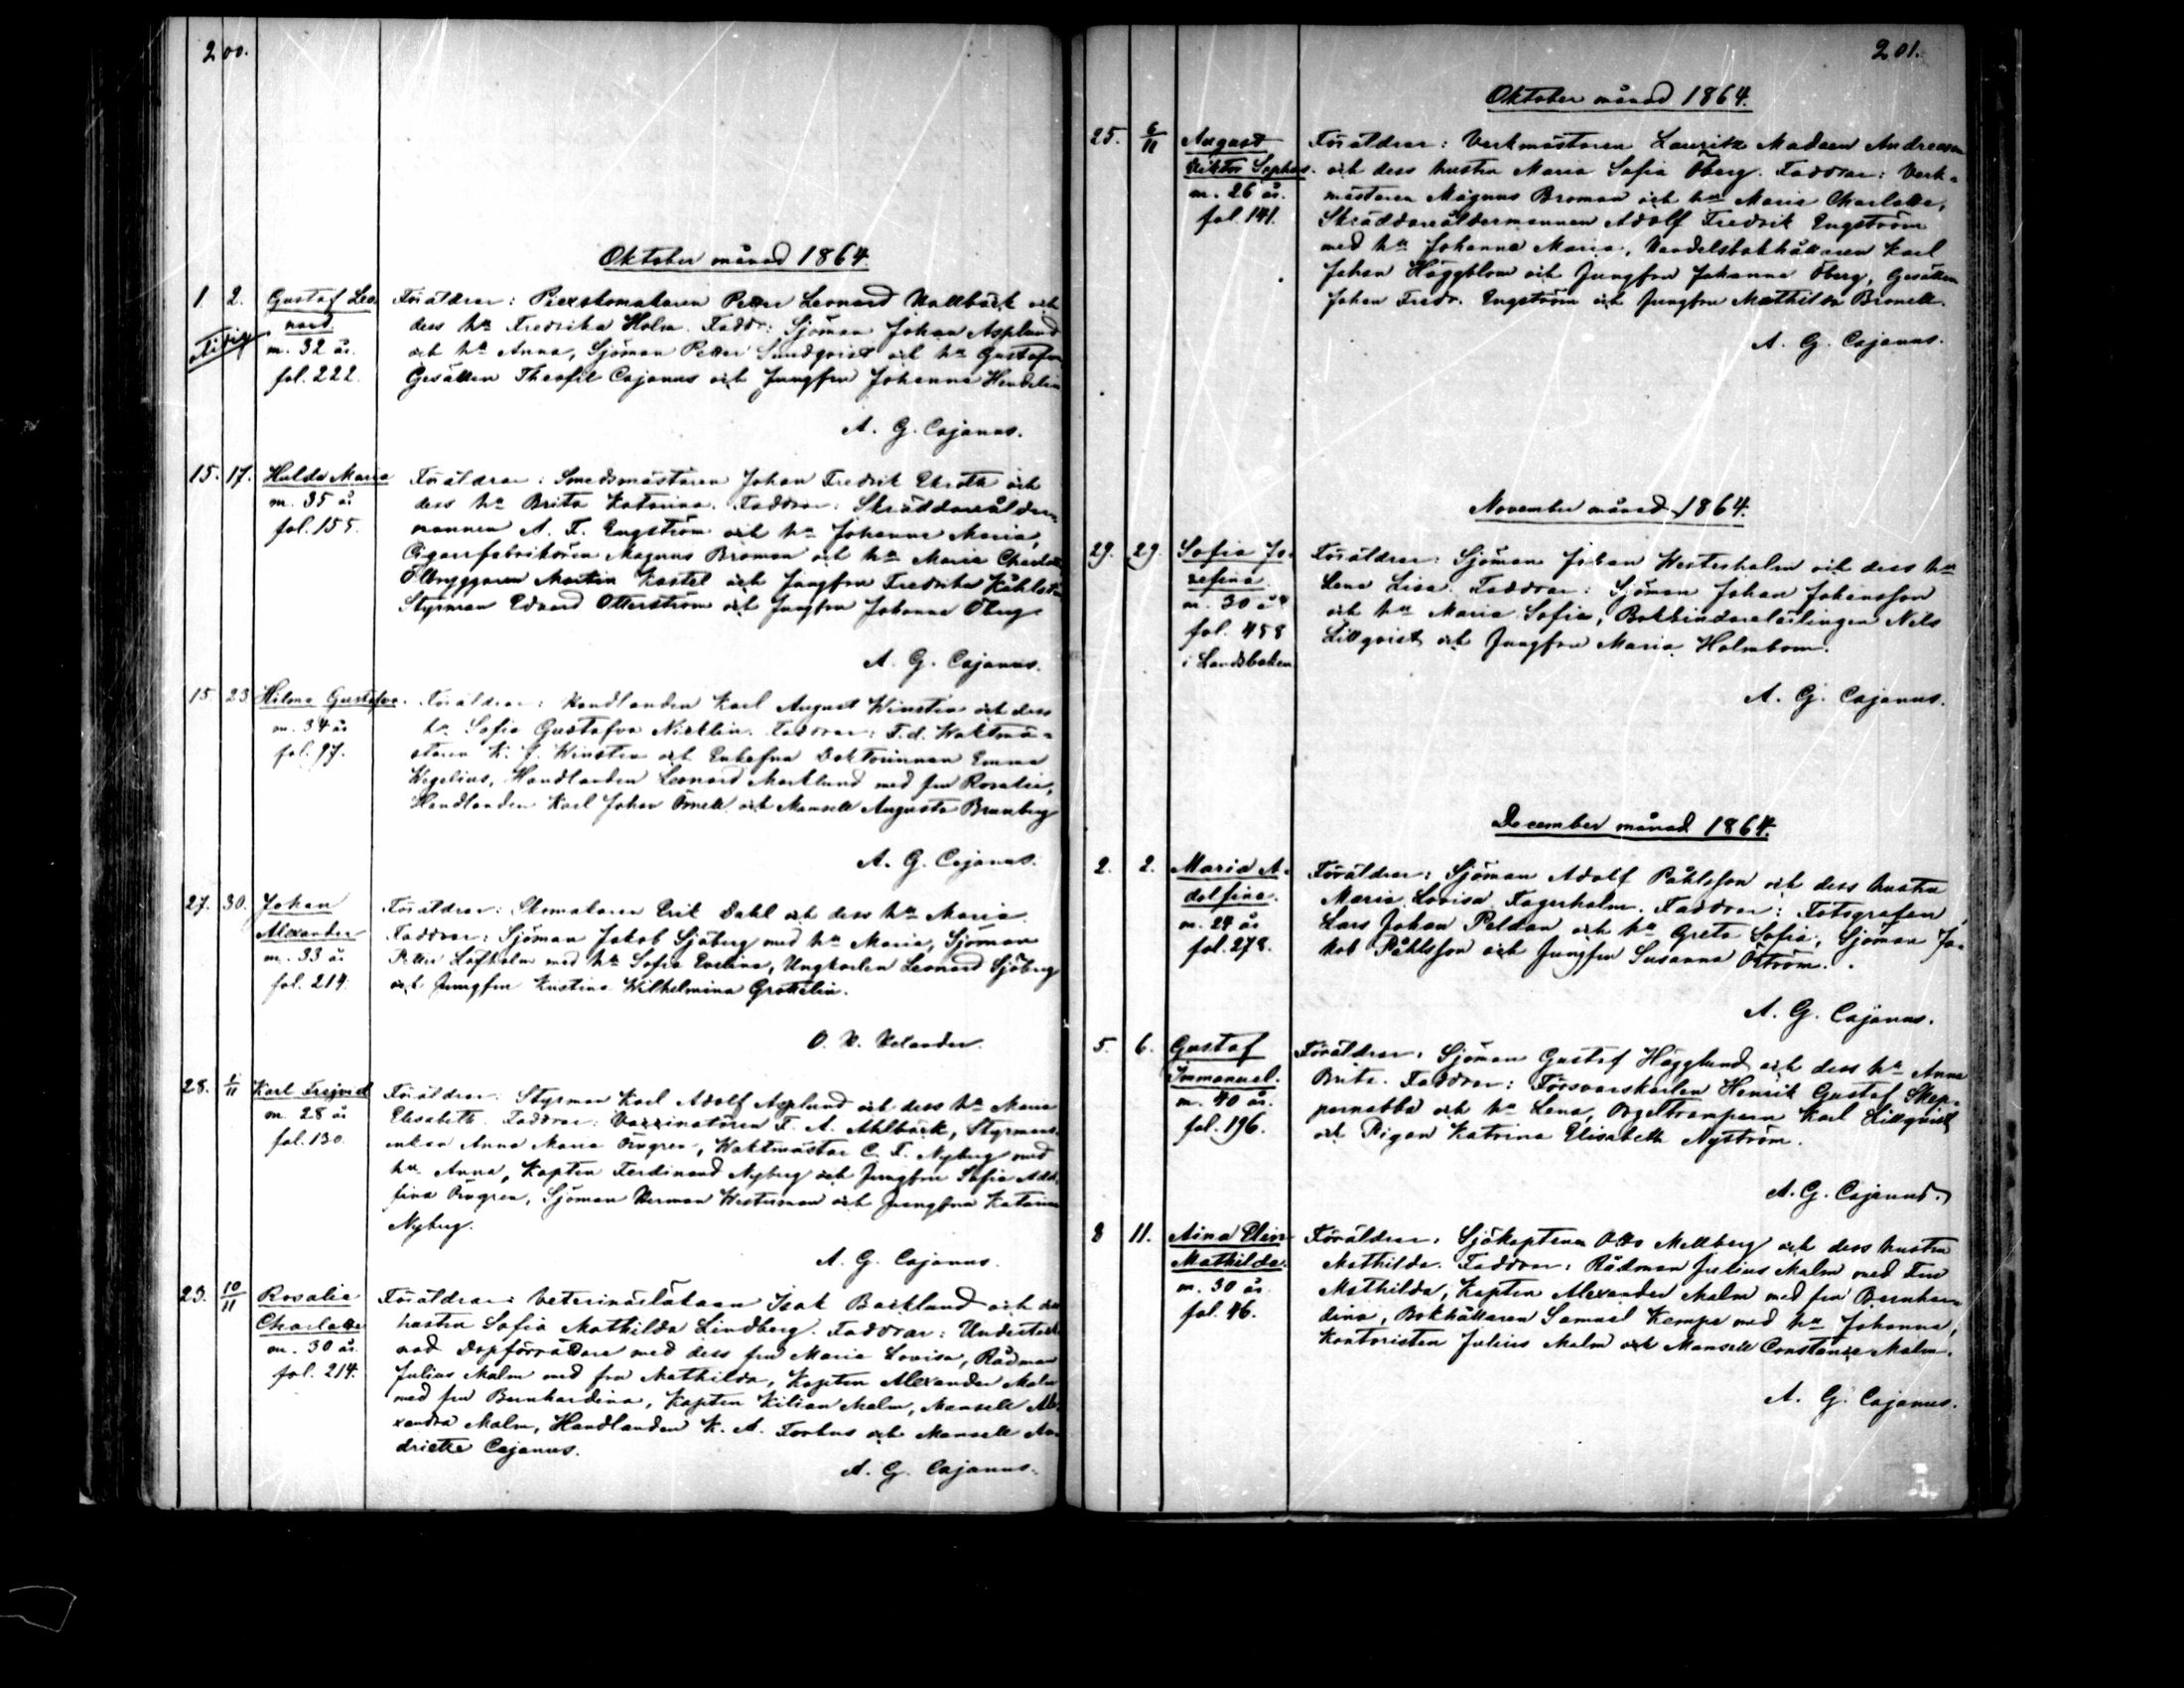 200.
Oktober månad 1864.
1. 2. Gustaf Leo- Föräldrar: Piexskomakaren Petter Leonard Kullbäck och
nard dess hu Fredrika Holm. Faddr: Sjöman Johan Asplund
m. 32 år. och hu Anna, Sjöman Petter Sundqvist och hu Gustafva
fol. 222. Gesällen Theofil Cajanus och Jungfru Johanna Hendelin
A. G. Cajanus.
15. 17. Hulda Maria Föräldrar: Smedsmästaren Johan Fredrik Ekroth och
m. 35 år dess hu Brita Katarina. Faddrar: Skräddareålder-
fol. 155. mannen A. F. Engström och hu Johanna Maria,
Cigarrfabrikören Magnus Broman och hu Maria Charlotta
Ölbryggaren Martin Kastel och Jungfru Fredrika
Styrman Edvard Otterström och Jungfru Johanna Öberg
A. G. Cajanus.
15. 23. Hilma Gustafva. Föräldrar: Handlanden Karl August Winstén och dess
m. 34 år hu Sofia Gustafva Nicklin. Faddrar: F.d. Waktmä-
fol. 97. staren K. J. Winstén och Enkefru Doktorinnan Emma
Wegelius, Handlanden Leonard Marklund med fru Rosalie,
Handlanden Karl Johan Örnell och Mamsell Augusta Brunberg
A. G. Cajanus.
27. 30. Johan Föräldrar: Skomakaren Erik Dahl och dess hu Maria.
Alexander Faddrar: Sjöman Jakob Sjöberg med hu Maria, Sjöman
m. 33 år Petter Löfholm med hu Sofia Evelina, Ungkarlen Leonard Sjöberg
fol. 214. och Jungfru Kristina Wilhelmina Grottelin.
O. H. Helander.
28. 1/11 Karl Frejvid Föräldrar: Styrman Karl Adolf Asplund och dess hu Maria
m. 28 år Elisabeth. Faddrar: Vaxxinatören F. A. Ahlbäck, Styrmans
fol. 130. enkan Anna Maria Örngren, Waktmästar C. F. Nyberg med
hu Anna, Kapten Ferdinand Nyberg och Jungfru Sofia Adol-
fina Örngren, Sjöman Herman Westerman och Jungfru Katarina
Nyberg.
A. G. Cajanus.
23. 10/11 Rosalie Föräldrar: Veterinärläkaren Isak Backlund och dess
Charlotte hustru Sofia Mathilda Lindberg. Faddrar: Underteck-
m. 30 år nad Dopförrättare med dess fru Maria Lovisa, Rådman
fol. 214. Julius Malm med fru Mathilda, Kapten Alexander Malm
med fru Bernhardina, Kapten Kilian Malm, Mamsell Ale-
xandra Malm, Handlanden K. A. Forhus och Mamsell An-
driette Cajanus.
A. G. Cajanus.
201.
Oktober månad 1864.
25. 6/11 August Föräldrar: Verkmästaren Lauritz Madsen Andreasen
Viktor Sophus. och dess hustru Maria Sofia Öberg. Faddrar: Verk-
m. 26 år. mästaren Magnus Broman och hu Maria Charlotta,
fol. 141. Skräddareåldermannen Adolf Fredrik Engström
med hu Johanna Maria, Handelsbokhållaren Karl
Johan Häggblom och Jungfru Johanna Öberg, Gesällen
Johan Fredr. Engström och Jungfru Mathilda Bronell.
A. G. Cajanus.
November månad 1864.
29. 29. Sofia Jo- Föräldrar: Sjöman Johan Westerholm och dess hu
sefina. Lena Lisa. Faddrar: Sjöman Johan Johansson
m. 30 år och hu Maria Sofia, Bokbindarelärlingen Nils
fol. 458 Lillqvist och Jungfru Maria Holmbom.
i Landsboken
A. G. Cajanus.
December månad 1864.
2. 2. Maria A- Föräldrar: Sjöman Adolf Påhlsson och dess hustru
dolfina. Maria Lovisa Fagerholm. Faddrar: Fotografen
m. 24 år Lars Johan Peldan och hu Greta Sofia, Sjöman Ja-
fol. 278. kob Påhlsson och Jungfru Susanna Öström.
A. G. Cajanus.
5. 6. Gustaf Föräldrar: Sjöman Gustaf Högglund och dess hu Anna
Immanuel. Brita. Faddrar: Försvarskarlen Henrik Gustaf Skep-
m. 40 år. parnabba och hu Lena, Orgeltramparn Karl Lillqvist
fol. 196. och Pigan Katrina Elisabeth Nyström.
A. G. Cajanus.
8 11. Aina Elin Föräldrar: Sjökaptenen Otto Mellberg och dess hustru
Mathilda. Mathilda. Faddrar: Rådman Julius Malm med Fru
m. 30 år. Mathilda, Kapten Alexander Malm med fru Bernhar-
fol. 46. dina, Bokhållaren Samuel Kempe med hu Johanna,
Kontoristen Julius Malm och Mamsell Constance Malm.
A. G. Cajanus.